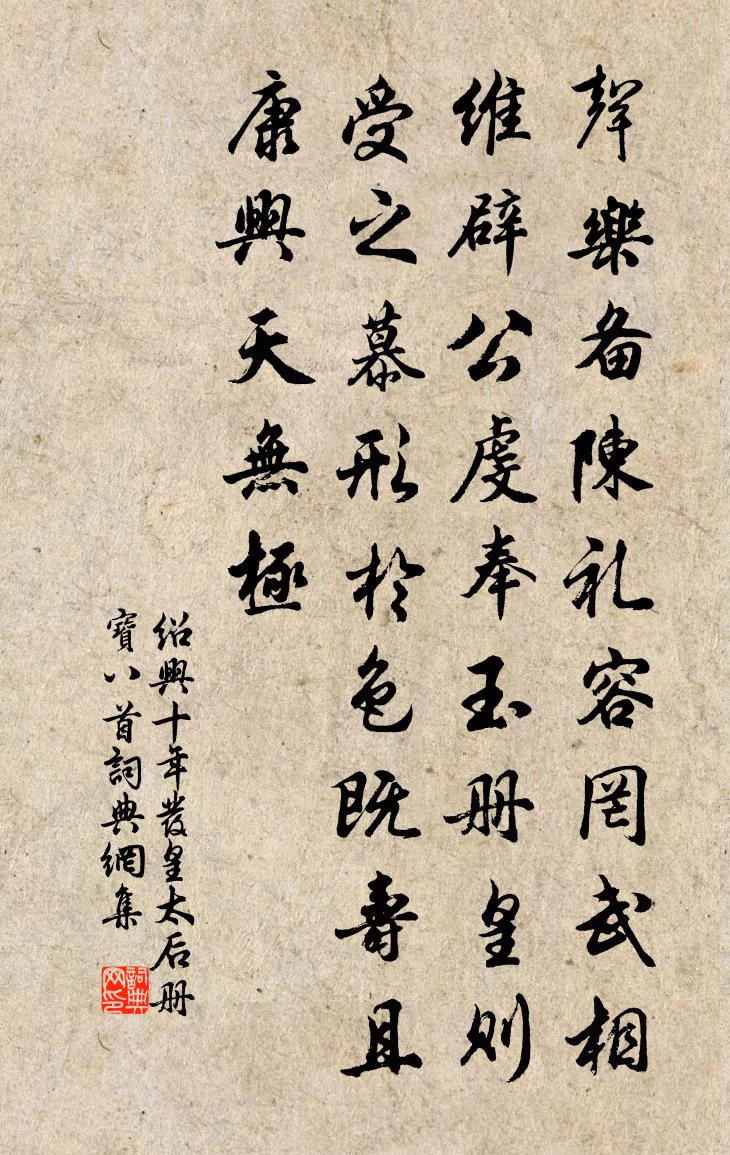 聲樂备陳礼容罔武相
維辟公虔奉玉册皇則
受之慕形於色既壽且
康興天無極
绍興十年發皇太后册
寶八首詞典網集
詞典网印